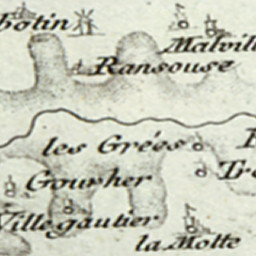 botin
Malvill
Ransouse
les Grées
Tre
Gourher
Villegautier
la Motte